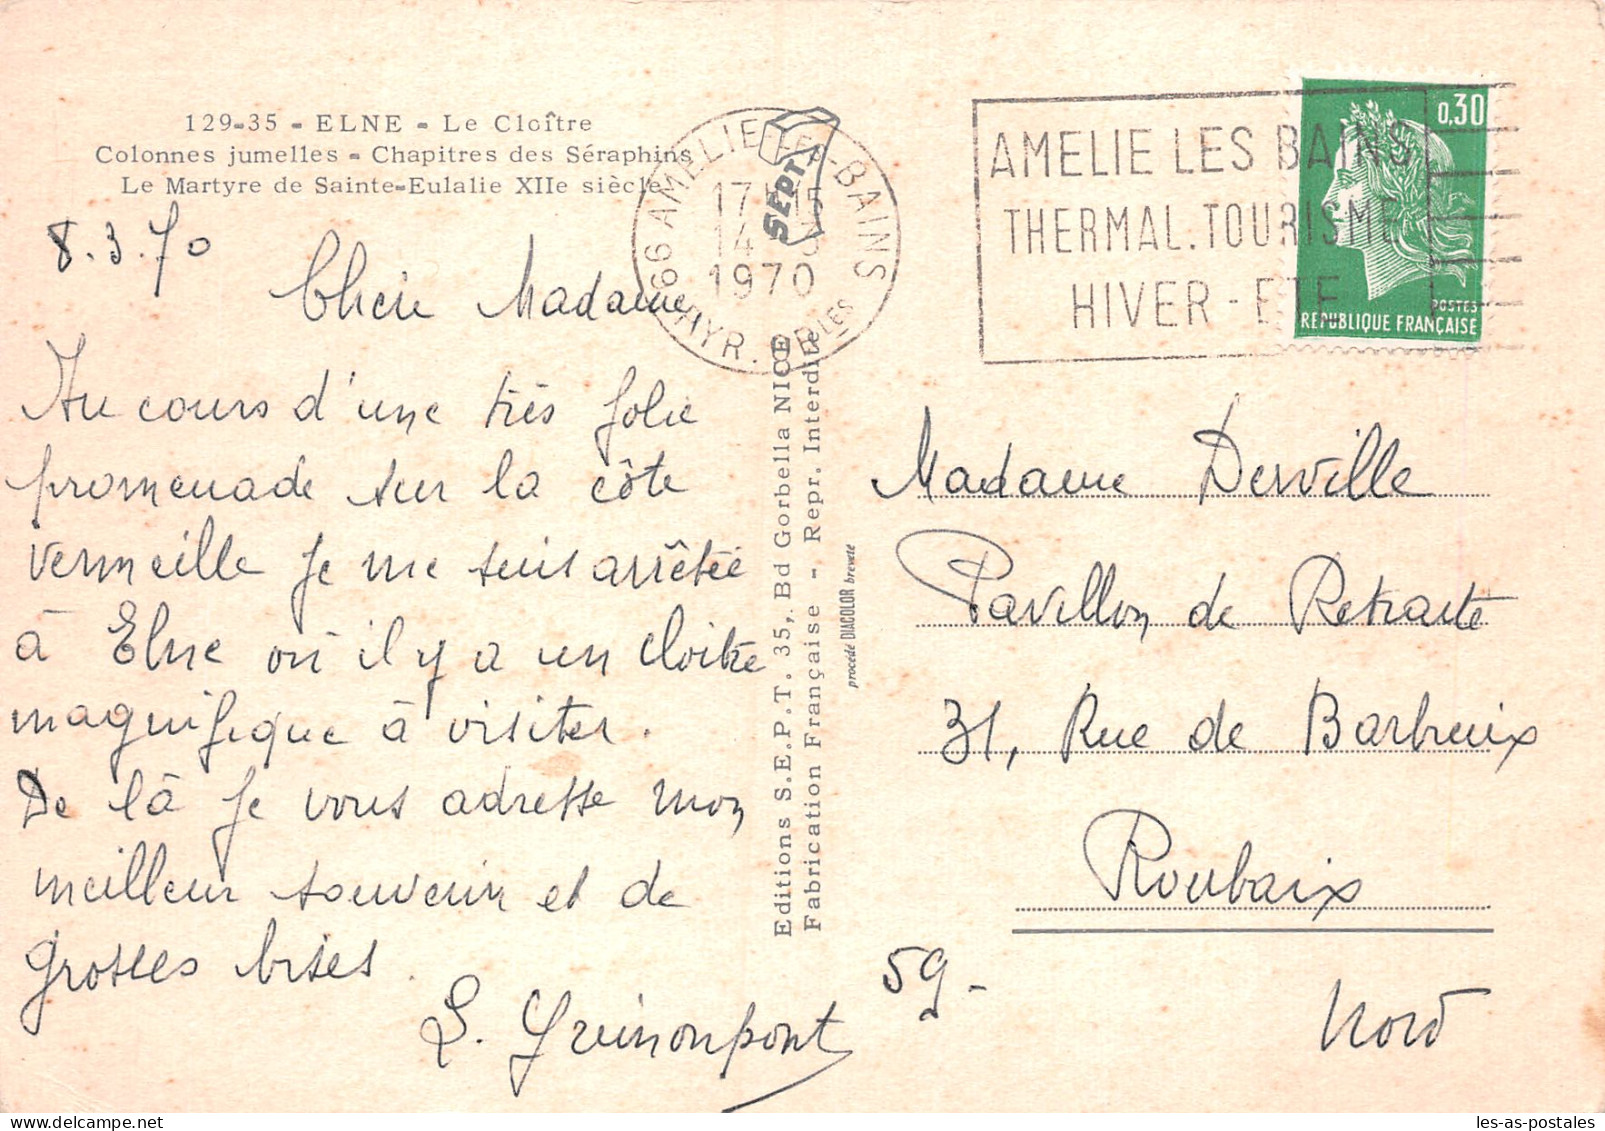 129-35 - ELNE - Le Cloître
Colonnes jumelles - Chapitres des Séraphins
Le Martyre de Sainte-Eulalie XIIe siècle
8.3.70
Chère Madame,
Au cours d'une très jolie
promenade sur la côte
vermeille je me suis arrêtée
à Elne où il y a un cloître
magnifique à visiter.
De là je vous adresse mon
meilleur souvenir et de
grosses bises.
66 AMELIE-LES-BAINS
PYR. OR LES
17H15
14
1970
SEPT
Editions S.E.P.T. 35, Bd Gorbella NICE
Fabrication Française - Repr. Interdite
procédé DIACOLOR breveté
AMELIE LES BAINS
THERMAL.TOURISME
HIVER - ETE
0,30
POSTES
REPUBLIQUE FRANÇAISE
Madame Derville
Pavillon de Retraite
31, Rue de Barbreuix
Roubaix
59-
Nord
les-as-postales